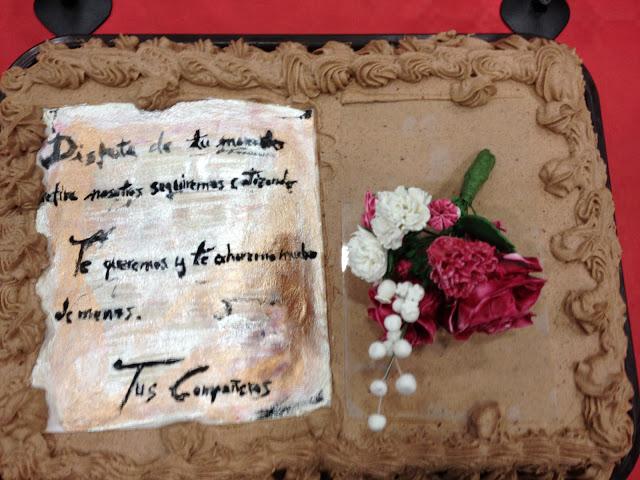 Disfruta de tu merecido
retiro nosotros seguiremos cotizando
Te queremos y te echaremos mucho
de menos.
Tus Compañeros